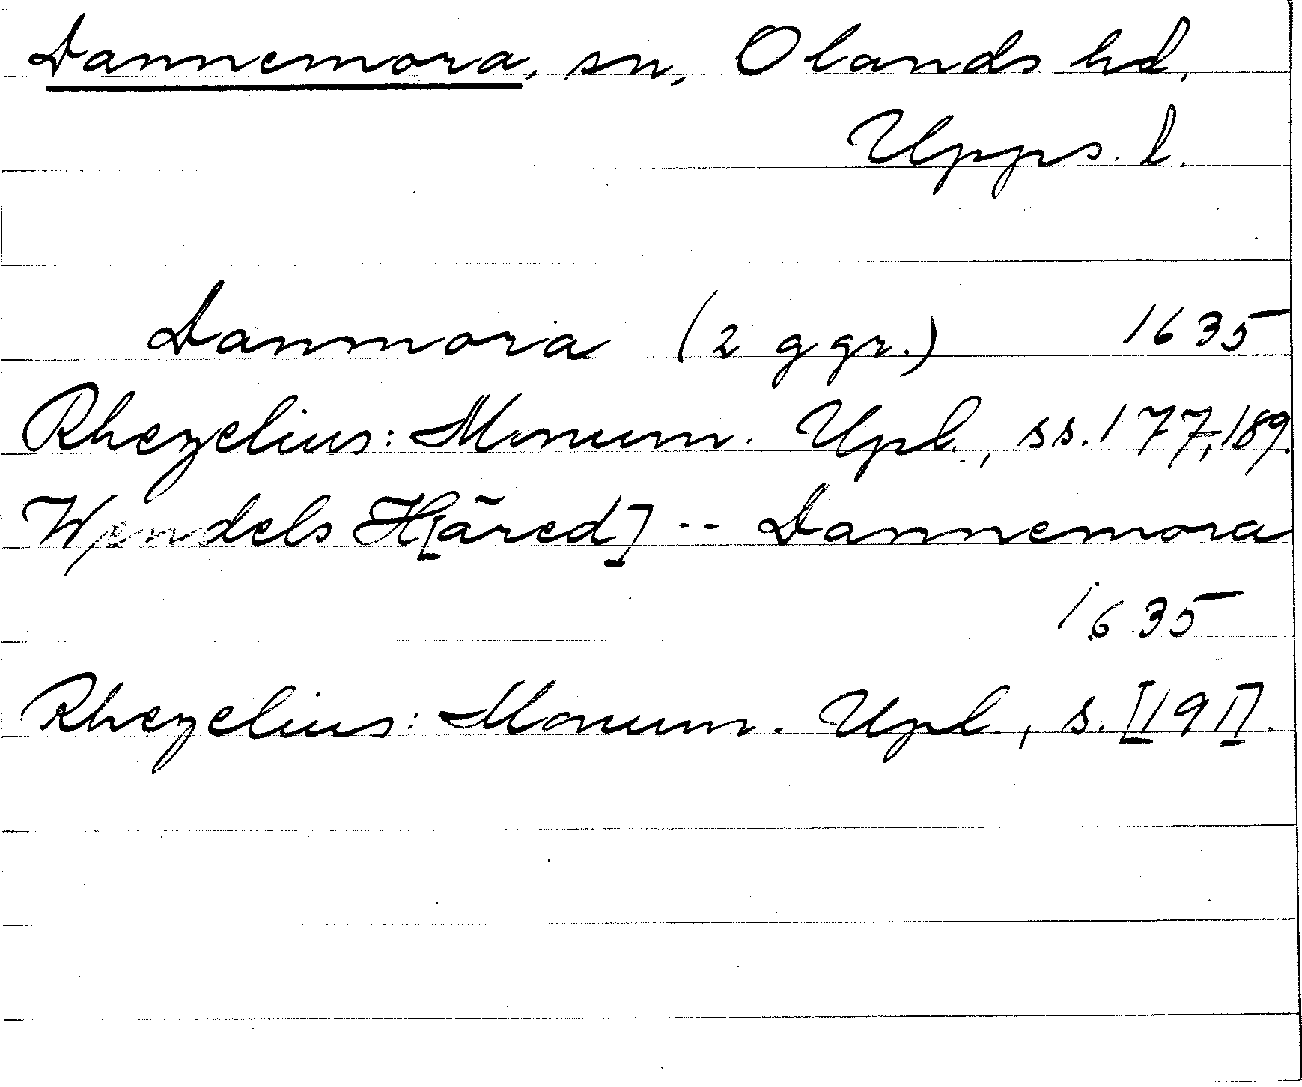 Dannemora, sn, Olands hd.
Upps. l.
Danmora (2 ggr.) 1635
Rhezelius: Monum. Upl., ss. 177, 189.
Wendels H[äred] -- Dannemora
1635
Rhezelius: Monum. Upl., s. [191].